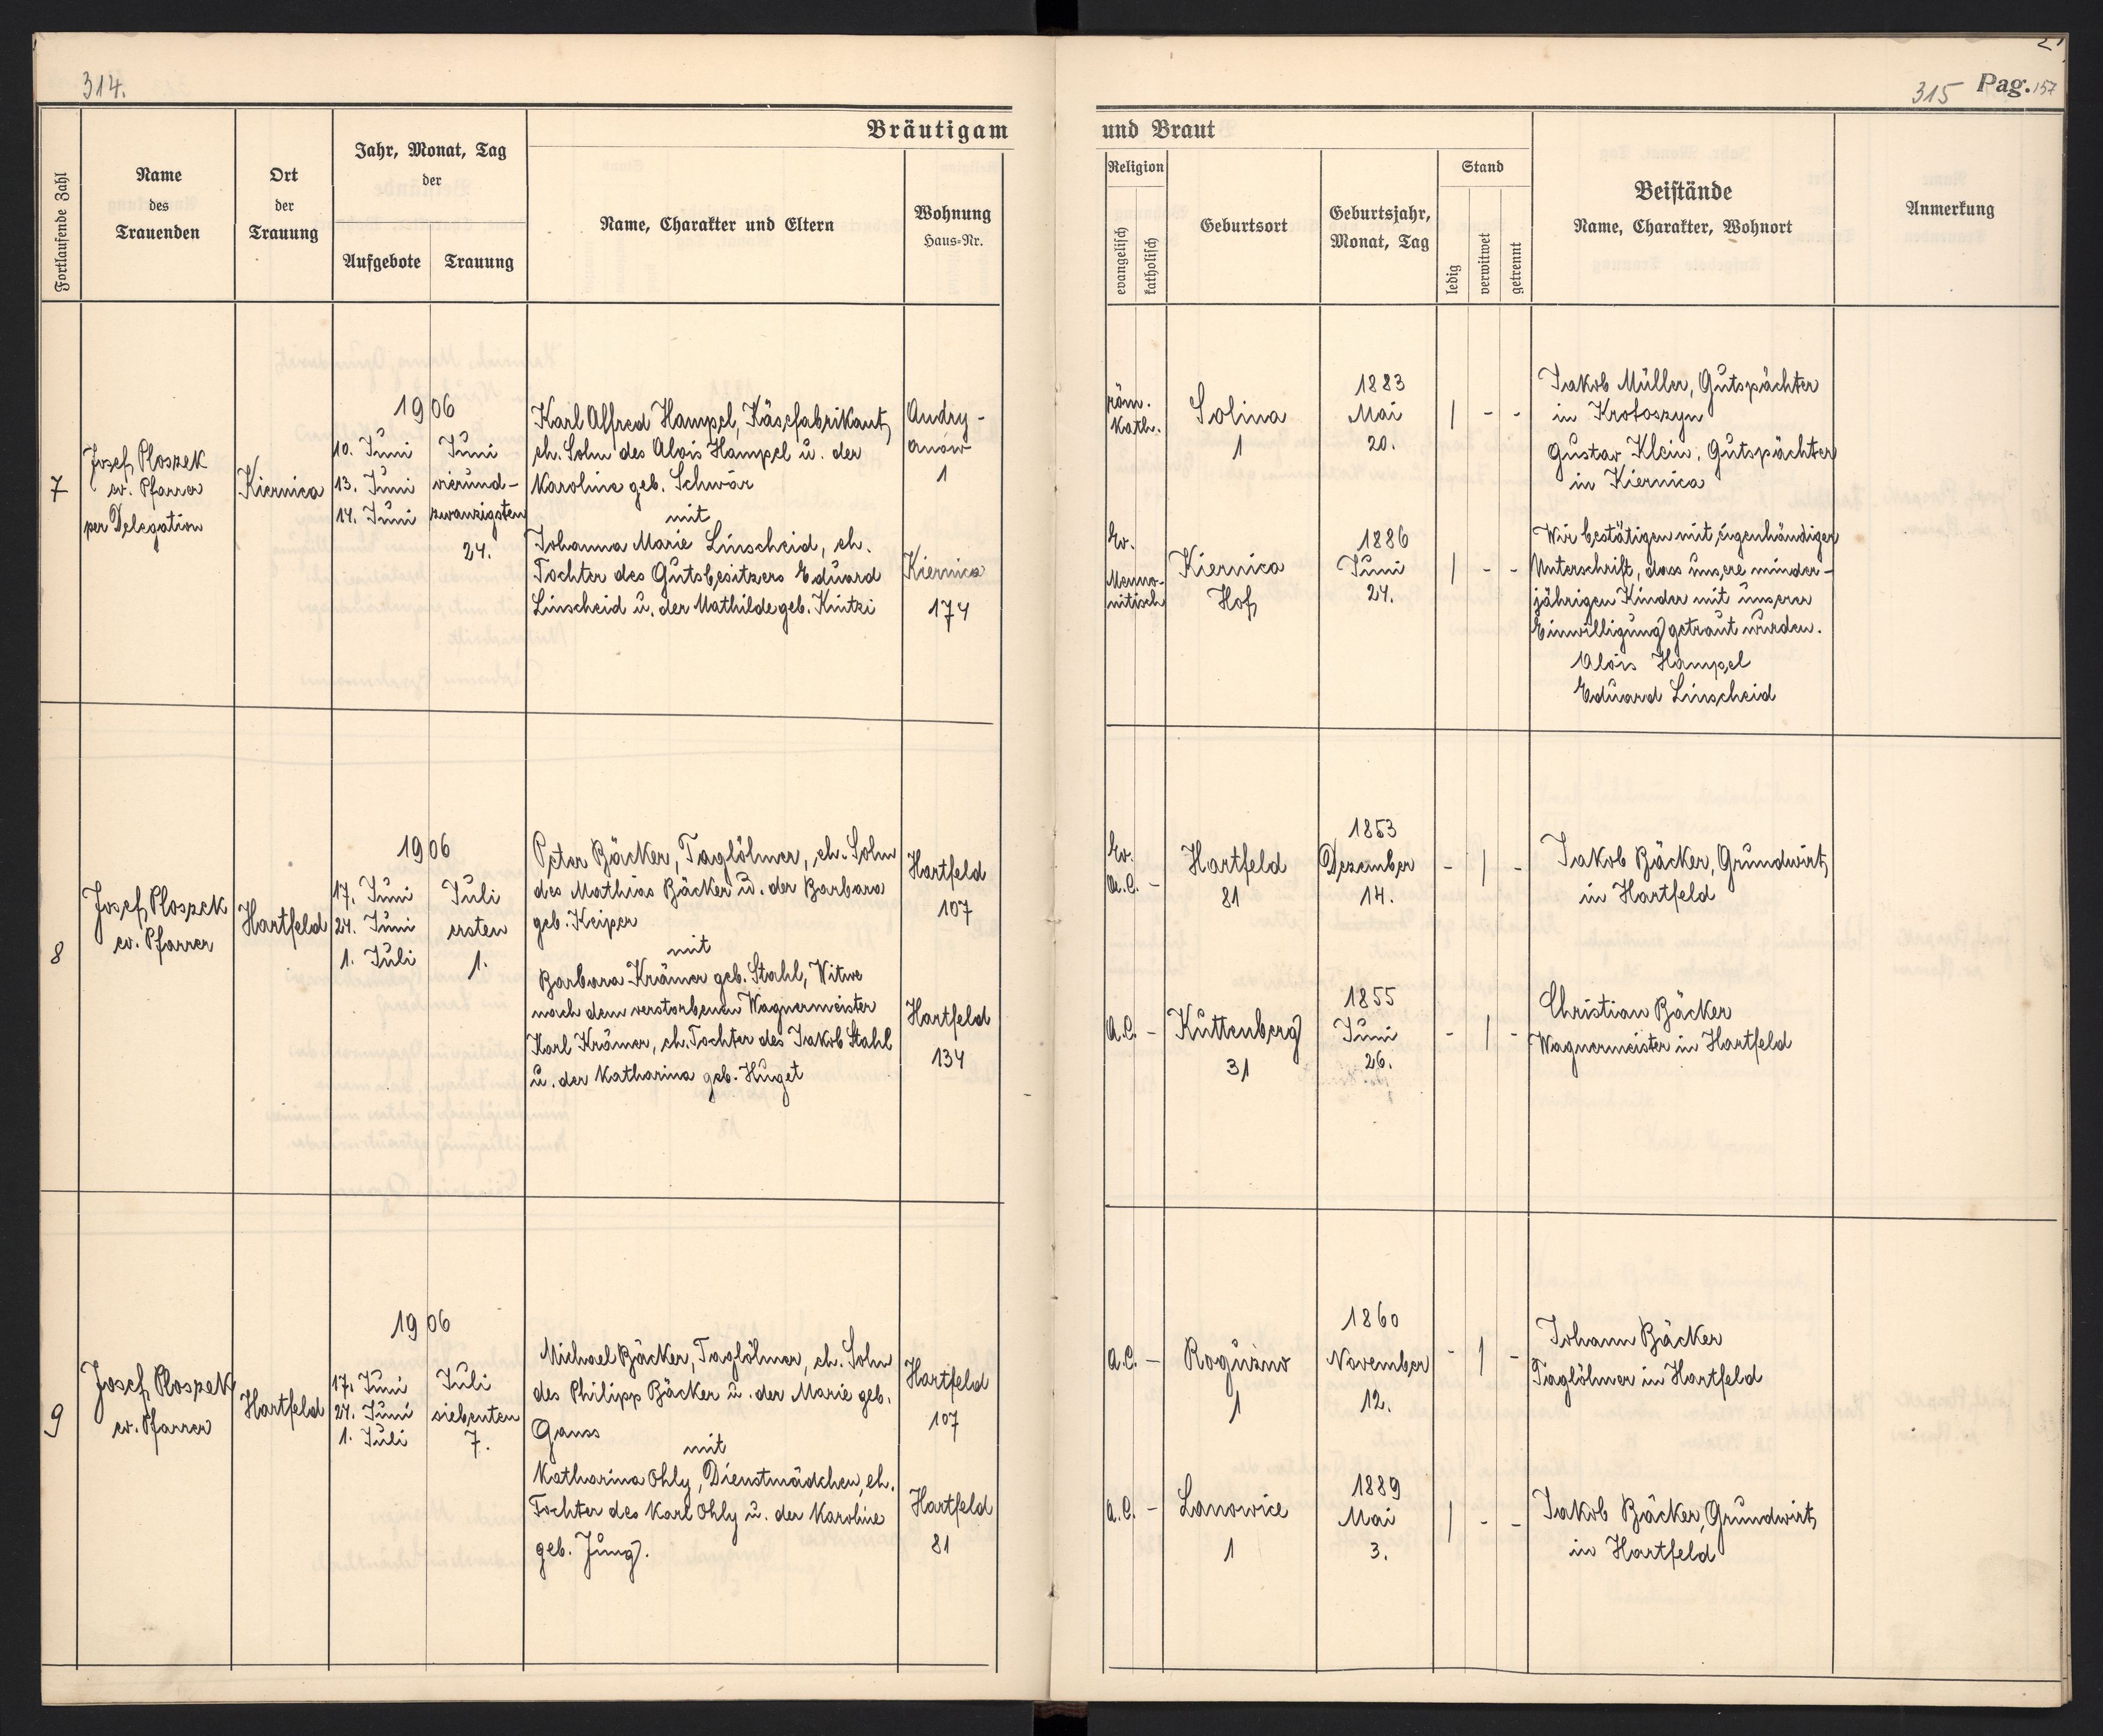 314.
315 Pag. 157
Bräutigam und Braut
Fortlaufende Zahl
Name
des
Trauenden
Ort
der
Trauung
Jahr, Monat, Tag
der
Aufgebote
Trauung
Name, Charakter und Eltern
Wohnung
Haus=Nr.
Religion
evangelisch
katholisch
Geburtsort
Geburtsjahr,
Monat, Tag
Stand
ledig
verwitwet
getrennt
Beistände
Name, Charakter, Wohnort
Anmerkung
7
Josef Ploszek
ev. Pfarrer
per Delegation
Kiernica
1906
10. Juni
13. Juni
14. Juni
Juni
vierund-
zwanzigsten
24.
Karl Alfred Hampel, Käsefabrikant,
eh. Sohn des Alois Hampel u. der
Karoline geb. Schwár
mit
Johanna Marie Linscheid, eh.
Tochter des Gutsbesitzers Eduard
Linscheid u. der Mathilde geb. Kintzi
Andry-
anów
1
Kiernica
174
röm.
kath.
Solina
1
1883
Mai
20.
| - -
Ev.
Menno-
nitisch
Kiernica
Hof
1886
Juni
24.
| - -
Jakob Müller, Gutspächter
in Krotoszyn
Gustav Klein, Gutspächter
in Kiernica
Wir bestätigen mit eigenhändiger
Unterschrift, dass unsere minder-
jährigen Kinder mit unserer
Einwilligung getraut wurden.
Alois Hampel
Eduard Linscheid
8
Josef Ploszek
ev. Pfarrer
Hartfeld
1906
17. Juni
24. Juni
1. Juli
Juli
ersten
1.
Peter Bäcker, Taglöhner, eh. Sohn
des Mathias Bäcker u. der Barbara
geb. Keiper
mit
Barbara Krämer geb. Stahl, Witwe
nach dem verstorbenen Wagnermeister
Karl Krämer, eh. Tochter des Jakob Stahl
u. der Katharina geb. Huget
Hartfeld
107
Hartfeld
134
Ev.
A.C. -
Hartfeld
81
1853
Dezember
14.
- | -
A.C. -
Kuttenberg
31
1855
Juni
26.
- | -
Jakob Bäcker, Grundwirt
in Hartfeld
Christian Bäcker
Wagnermeister in Hartfeld
9
Josef Ploszek
ev. Pfarrer
Hartfeld
1906
17. Juni
24. Juni
1. Juli
Juli
siebenten
7.
Michael Bäcker, Taglöhner, eh. Sohn
des Philipp Bäcker u. der Marie geb.
Gauss
mit
Katharina Ohly, Dienstmädchen, eh.
Tochter des Karl Ohly u. der Karoline
geb. Jung.
Hartfeld
107
Hartfeld
81
A.C. -
Roguzno
1
1860
November
12.
- | -
A.C. -
Lanowice
1
1889
Mai
3.
| - -
Johann Bäcker
Taglöhner in Hartfeld
Jakob Bäcker, Grundwirt
in Hartfeld